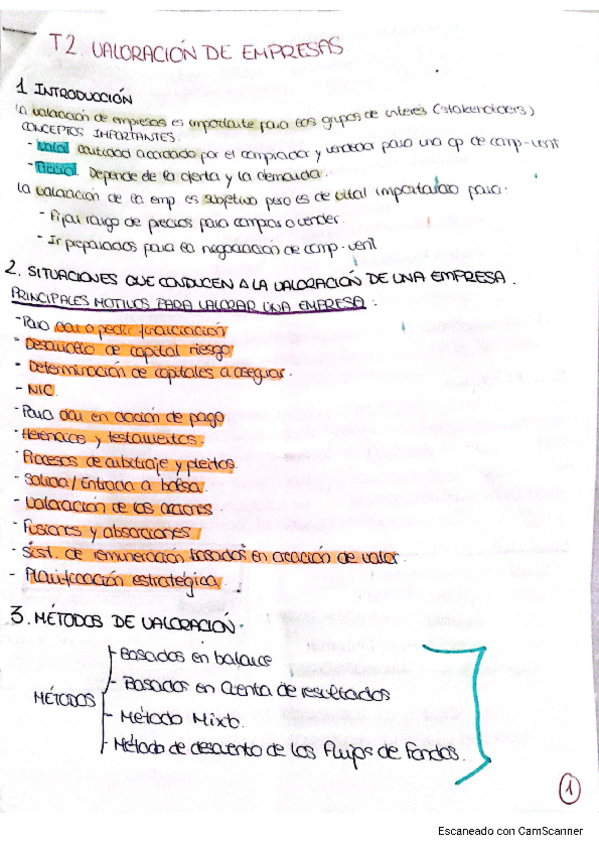 T2. VALORACIÓN DE EMPRESAS
1. INTRODUCCIÓN
La valoración de empresas es importante para los grupos de interés (stakeholders)
CONCEPTOS IMPORTANTES.
- Valor. cantidad acordada por el comprador y vendedor para una op de comp-vent
- Precio. Depende de la oferta y la demanda.
La valoración de la emp. es subjetivo pero es de vital importancia para:
- Fijar rango de precios para comprar o vender.
- Ir preparados para la negociación de comp-vent
2. SITUACIONES QUE CONDUCEN A LA VALORACIÓN DE UNA EMPRESA.
PRINCIPALES MOTIVOS PARA VALORAR UNA EMPRESA:
- Para dar o pedir financiación
- Desarrollo de capital riesgo
- Determinación de capitales a asegurar.
- NIC
- Para dar en dación de pago
- Herencias y testamentos.
- Procesos de arbitraje y pleitos.
- Salida/Entrada a bolsa.
- Valoración de las acciones.
- Fusiones y absorciones.
- Sist. de remuneración basados en creación de valor.
- Planificación estratégica.
3. MÉTODOS DE VALORACIÓN.
MÉTODOS
- Basados en balance
- Basados en Cuenta de resultados
- Método Mixto.
- Método de descuento de los Flujos de Fondos.
1
Escaneado con CamScanner